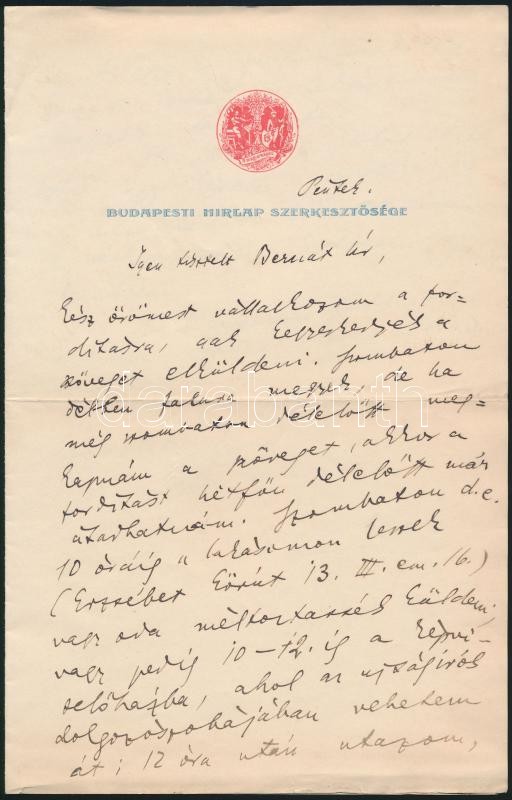 Péntek.
BUDAPESTI HIRLAP SZERKESZTŐSÉGE
Igen tisztelt Bernát úr,
kész örömest vállalkozom a for-
ditásra, csak kegyeskedjék a
szöveget elküldeni. Szombaton
délben falura megyek, de ha
még szombaton délelőtt meg-
kapnám a szöveget, akkor a
forditást hétfőn délelőtt már
átadhatnám. Szombaton d.e.
10 óráig a lakásomon leszek
(Erzsébet Körút 13. III. em. 16.)
vagy oda méltóztassék küldeni,
vagy pedig 10–12.ig a képvi-
selőházba, ahol az ujságirók
dolgozószobájában vehetem
át; 12 óra után utazom,
darabanth